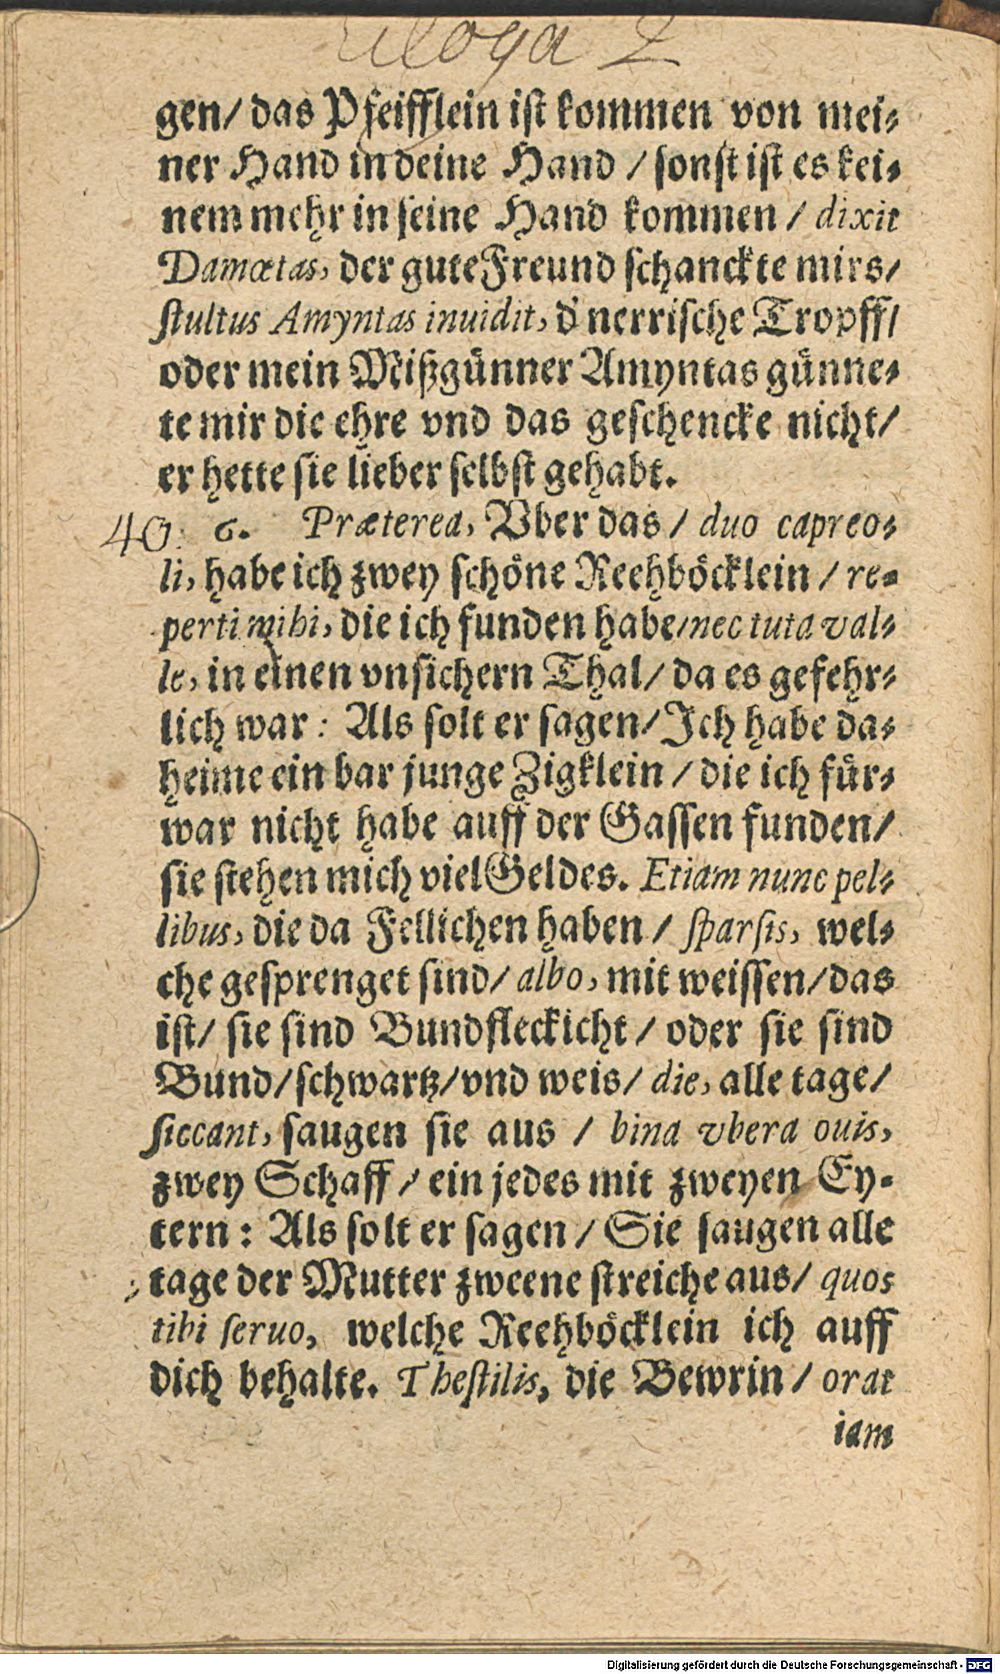 Ecloga 2
gen/ das Pfeifflein ist kommen von mei⸗
ner Hand in deine Hand / sonst ist es kei⸗
nem mehr in seine Hand kommen / dixit
Damœtas, der gute Freund schanckte mirs/
stultus Amyntas inuidit, d' nerrische Tropff/
oder mein Mißgünner Amyntas günne⸗
te mir die ehre vnd das geschencke nicht/
er hette sie lieber selbst gehabt.
40. 6. Præterea, Vber das / duo capreo⸗
li, habe ich zwey schöne Reehböcklein / re⸗
perti mihi, die ich funden habe/nec tuta val⸗
le, in einen vnsichern Thal/ da es gefehr⸗
lich war: Als solt er sagen/ Ich habe da⸗
heime ein bar junge Zigklein / die ich für⸗
war nicht habe auff der Gassen funden/
sie stehen mich viel Geldes. Etiam nunc pel⸗
libus, die da Fellichen haben / sparsis, wel⸗
che gesprenget sind/ albo, mit weissen/das
ist/ sie sind Bundfleckicht / oder sie sind
Bund/schwartz/vnd weis/ die, alle tage/
siccant, saugen sie aus / bina vbera ouis,
zwey Schaff / ein jedes mit zweyen Ey⸗
tern: Als solt er sagen / Sie saugen alle
tage der Mutter zweene streiche aus/ quos
tibi seruo, welche Reehböcklein ich auff
dich behalte. Thestilis, die Bewrin / orat
iam
Digitalisierung gefördert durch die Deutsche Forschungsgemeinschaft - DFG